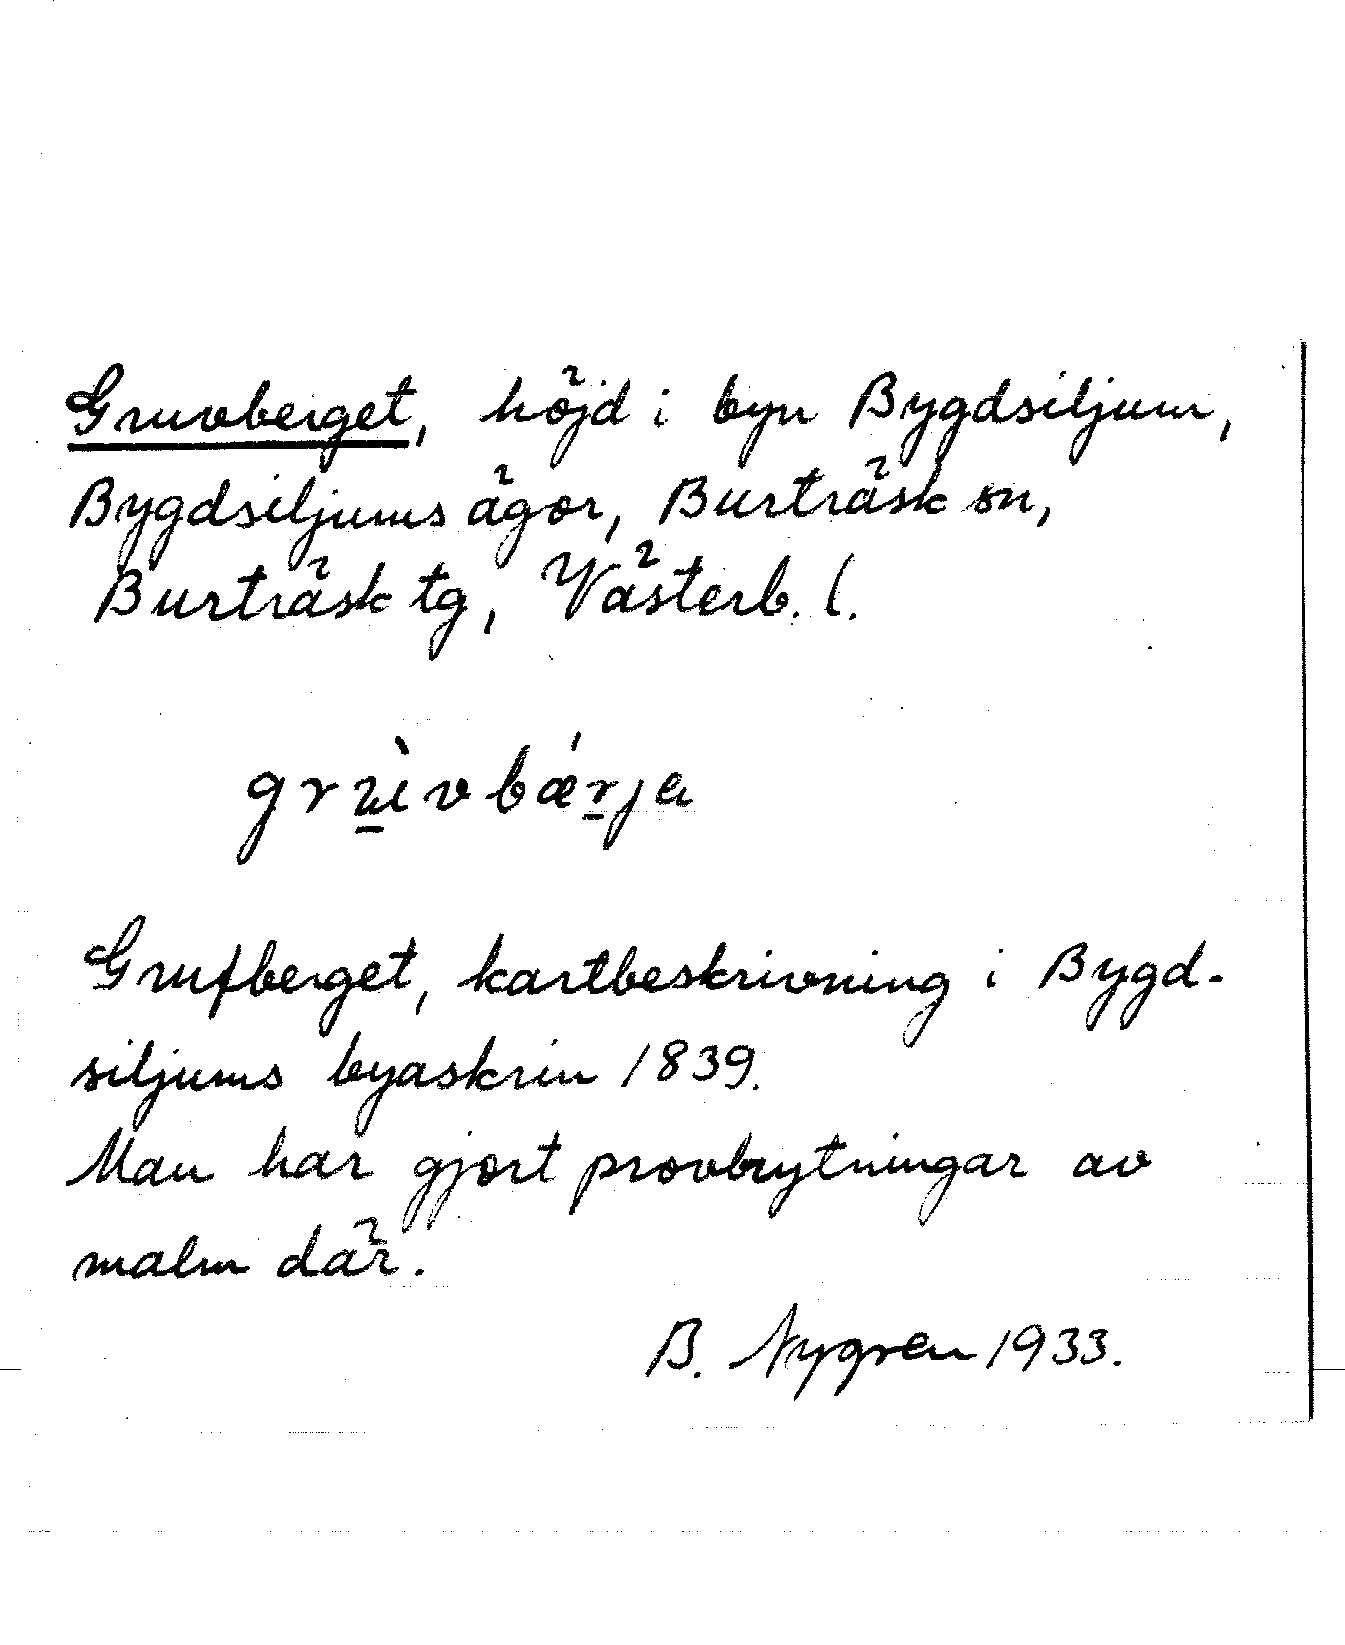 Gruvberget, höjd i byn Bygdsiljum,
Bygdsiljums ägor, Burträsk sn,
Burträsk tg, Västerb. l.
Grufberget, kartbeskrivning i Bygd-
siljums byaskrin 1839.
Man har gjort provbrytningar av
malm där.
B. Nygren 1933.